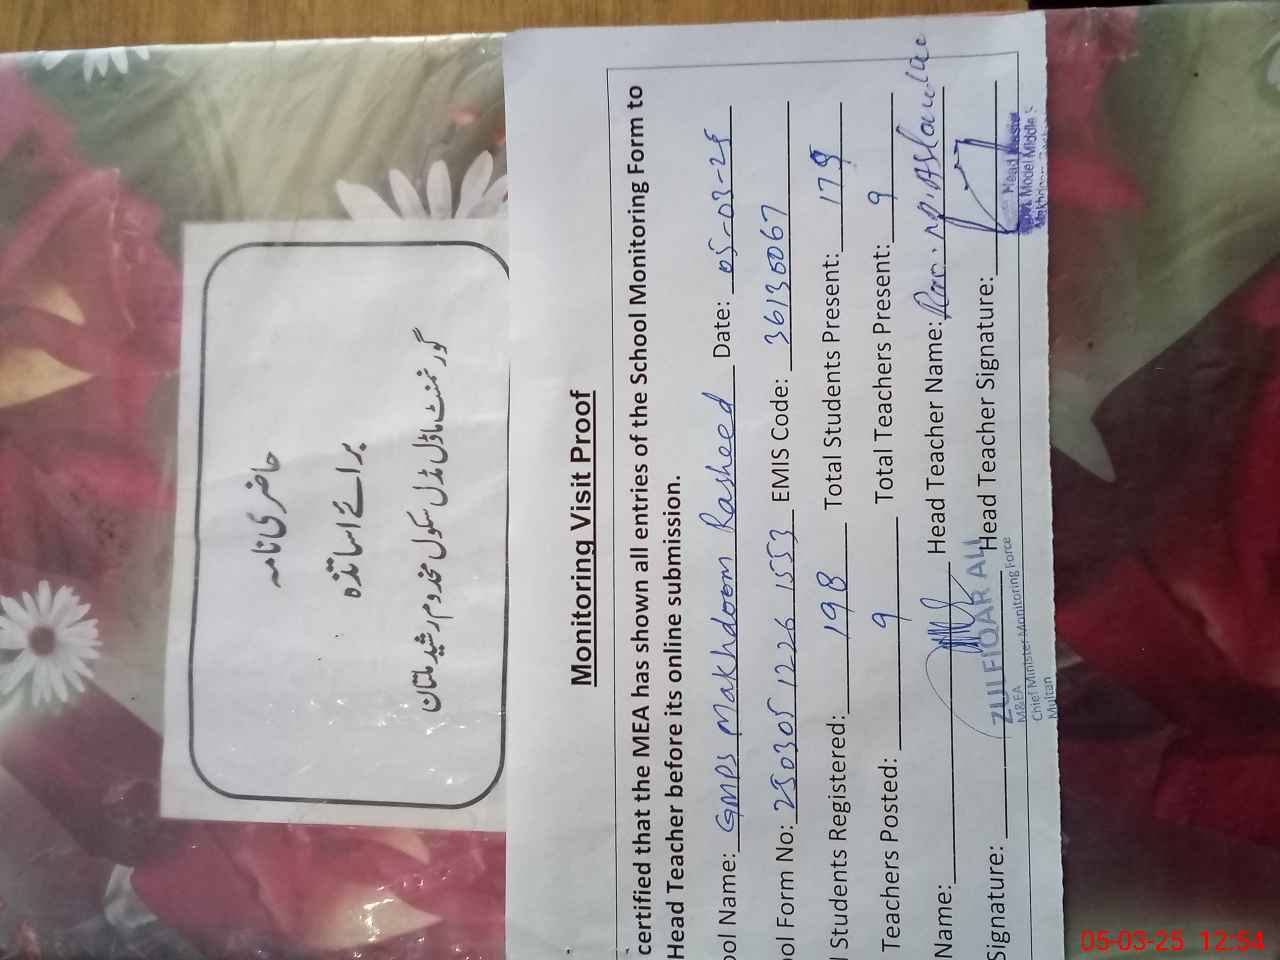 حاضری نامہ
برائے اساتذہ
گورنمنٹ ماڈل مڈل سکول مخدوم رشید ملتان
Monitoring Visit Proof
certified that the MEA has shown all entries of the School Monitoring Form to
Head Teacher before its online submission.
ool Name: GMPS Makhdoom Rasheed Date: 05-03-25
ool Form No: 250305 1226 1553 EMIS Code: 36130067
l Students Registered: 198 Total Students Present: 179
Teachers Posted: 9 Total Teachers Present: 9
Name: Head Teacher Name: Rao. M. Aslam
Signature: Head Teacher Signature:
ZULFIQAR ALI
M&EA
Chief Minister Monitoring Force
Multan
Head Master
Model Middle S
Makhdoom
05-03-25 12:54